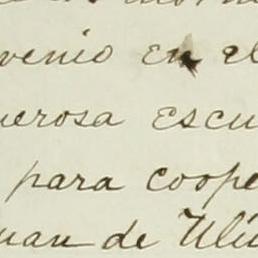 venio en el
uerosa escu
para coope
uan de Ulú